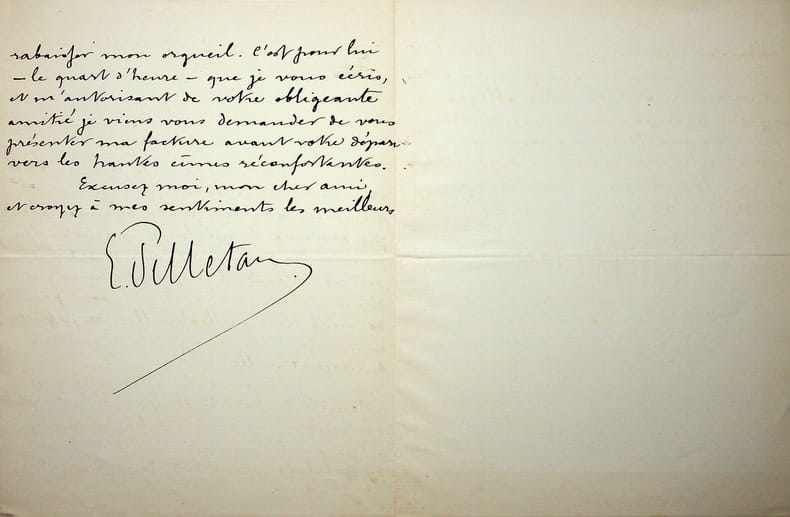 rabaisser mon orgueil. C'est pour lui
– le quart d'heure – que je vous écris,
et m'autorisant de votre obligeante
amitié je viens vous demander de vous
présenter ma facture avant votre départ
vers les hautes cimes réconfortantes.
Excusez moi, mon cher ami,
et croyez à mes sentiments les meilleurs
E. Pelletan